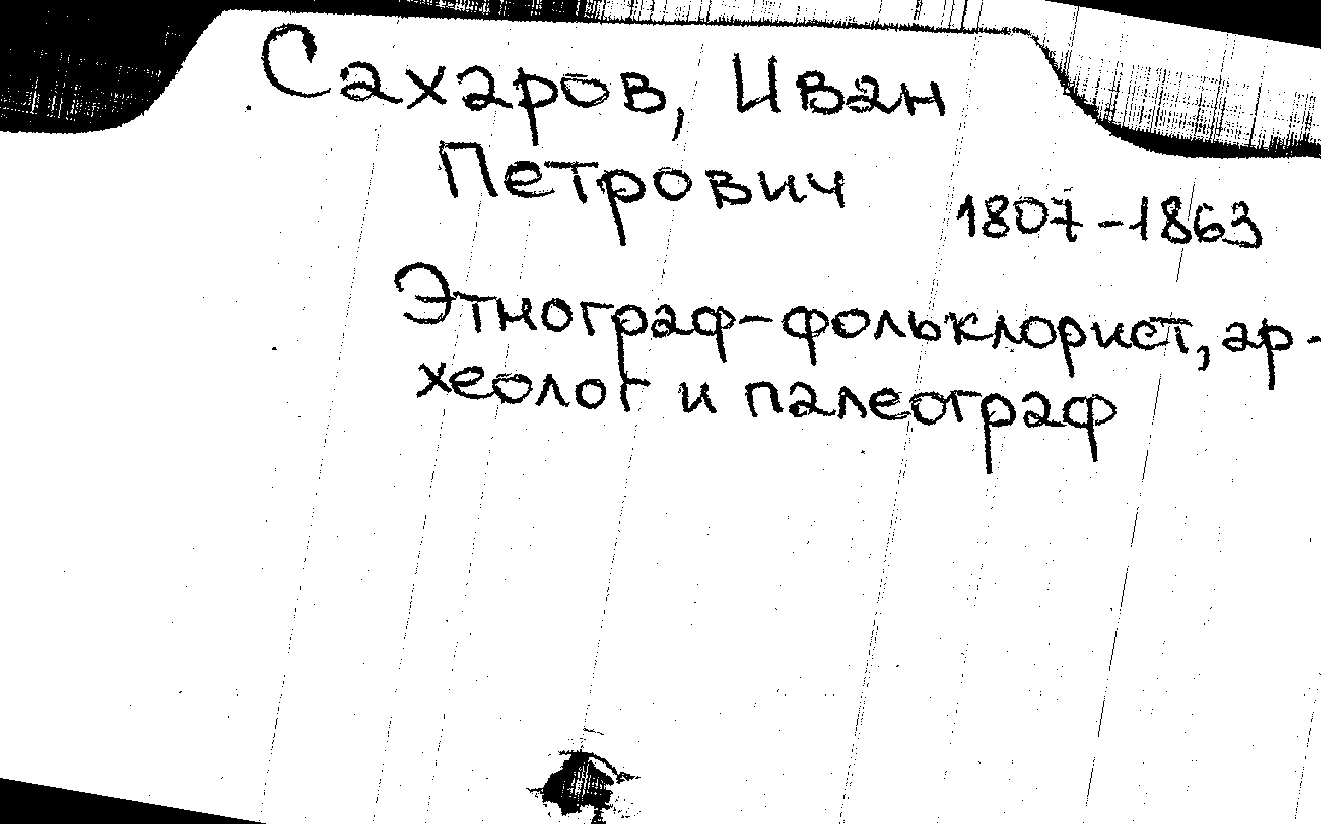 Сахаров, Иван
Петрович
1807-1863
Этнограф-фольклорист, ар-
хеолог и палеограф